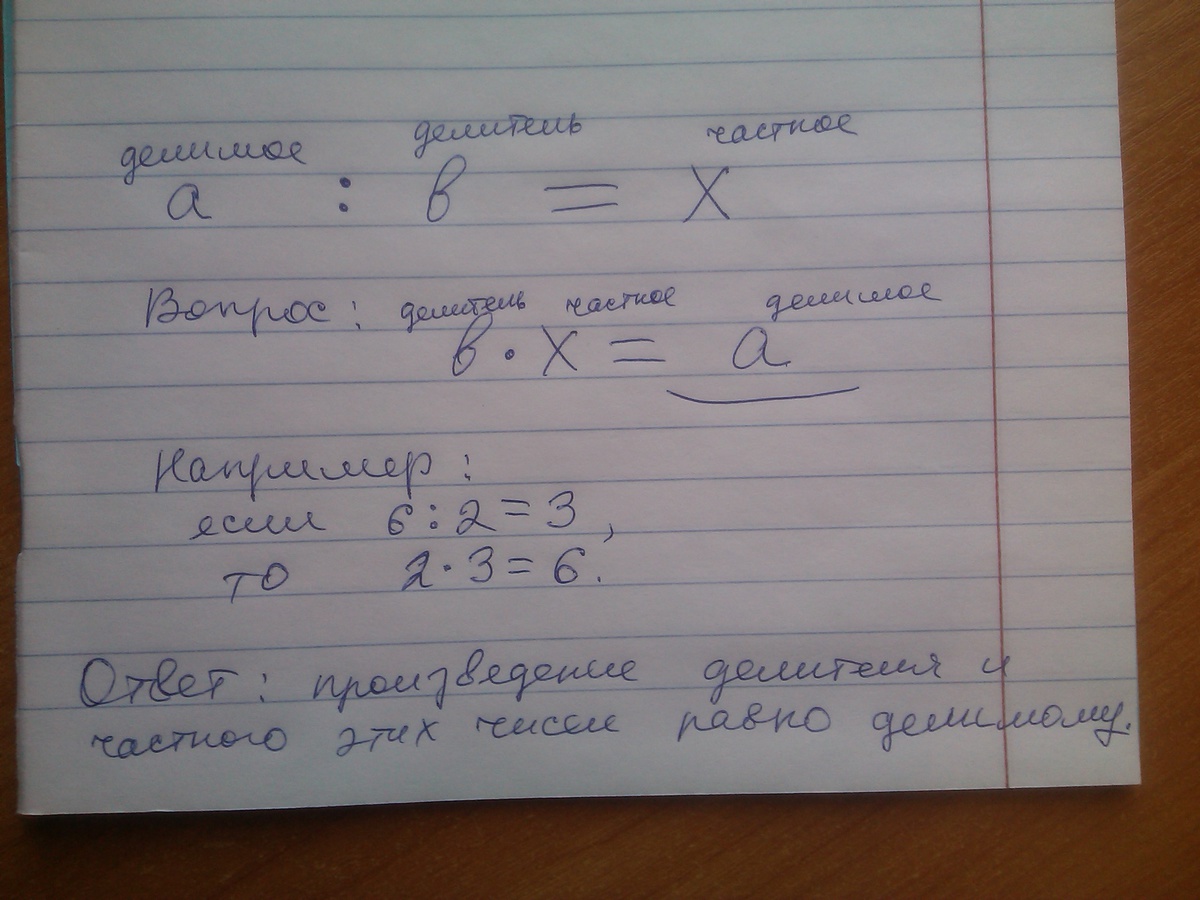 делимое делитель частное
а : в = х
Вопрос: делитель частное делимое
в · х = а
Например:
если 6 : 2 = 3,
то 2 · 3 = 6.
Ответ: произведение делителя и
частного этих чисел равно делимому.